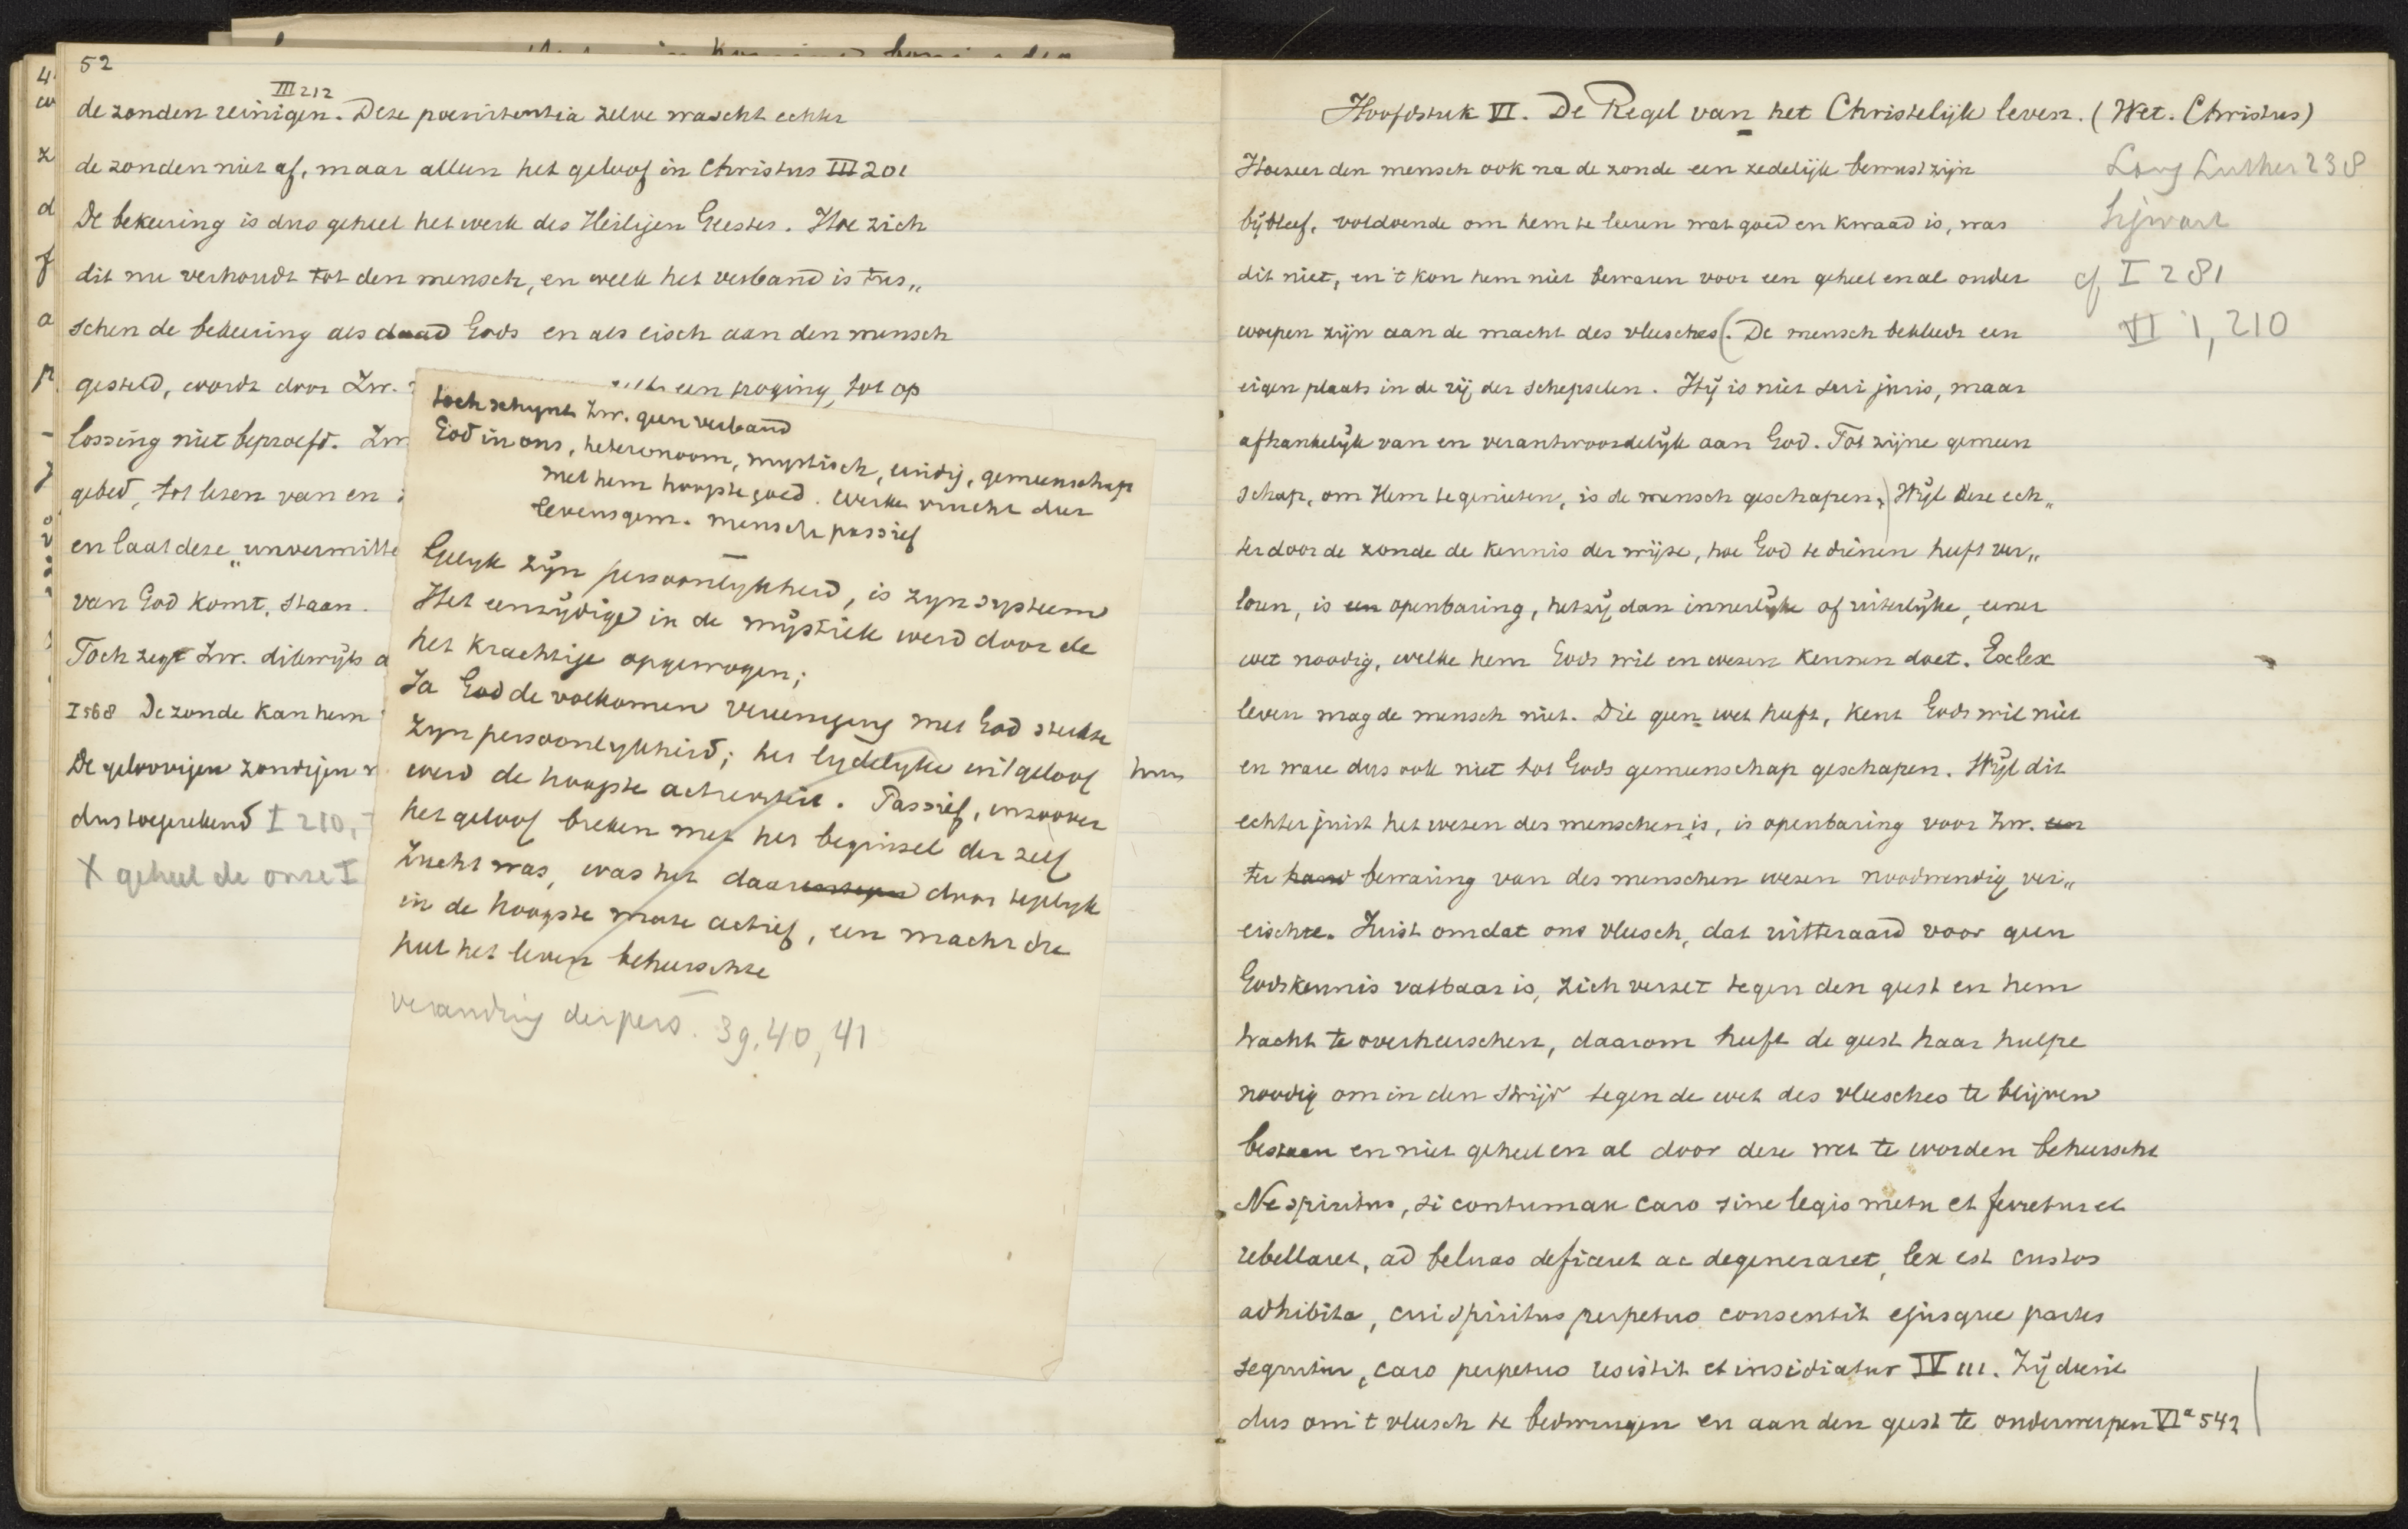 52
III 212
de zonden reinigen. Deze poenitentia zelve wascht echter
de zonden niet af, maar alleen het geloof in Christus III 201
De bekeering is dus geheel het werk des Heiligen Geestes. Hoe zich
dit nu verhoudt tot den mensch, en welk het verband is tus„
schen de bekeering als daad Gods en als eisch aan den mensch
gesteld, wordt door Zw. een poging, tot op
lossing niet beproefd. Zw.
gebed, tot lezen van en
en laat deze „unvermitte
van God komt, staan.
Toch zegt Zw. dikwijls
I 568 De zonde kan hem
De geloovigen zondigen
dus toegerekend I 210,
X geheel de onze I
toch schynt Zw. geen verband
God in ons, heteronoom, mystisch, eindig, gemeenschap
met hem hoogste goed. Werken vrucht der
levensgem. mensch passief
Gelyk zyn persoonlykheid, is zyn systeem
Het eenzydige in de mystiek werd door de
het krachtige opgewogen;
Ja God de volkomen vereeniging met God sterkte
zyn persoonlykheid; het lydelyke uitgeloof
werd de hoogste activiteit. Passief, inzoover
het geloof breken met het beginsel der zelf
zucht was, was het daar door tegelyk
in de hoogste mate actief, een macht die
heel het leven beheerschte
verandring der pers. 39, 40, 41
hun
Hoofdstuk VI. De Regel van het Christelijk leven. (Wet. Christus)
Hoezeer den mensch ook na de zonde een zedelijk bewustzijn
bijbleef, voldoende om hem te leeren wat goed en kwaad is, was
dit niet, en 't kon hem niet bewaren voor een geheel en al onder
worpen zijn aan de macht des vleesches (. De mensch bekleedt een
eigen plaats in de rij der schepselen. Hij is niet sui juris, maar
afhankelijk van en verantwoordelijk aan God. Tot zijne gemeen
schap, om Hem te genieten, is de mensch geschapen.) Wijl deze ech„
ter door de zonde de kennis der wijze, hoe God te dienen heeft ver„
loren, is een openbaring, hetzij dan innerlijke of uiterlijke, eener
wet noodig, welke hem Gods wil en wezen kennen doet. Exlex
leven mag de mensch niet. Die geen wet heeft, kent Gods wil niet
en ware dus ook niet tot Gods gemeenschap geschapen. Wijl dit
echter juist het wezen des menschen is, is openbaring voor Zw. een
ter hand bewaring van des menschen wezen noodwendig ver„
eischte. Juist omdat ons vleesch, dat uitteraard voor geen
Godskennis vatbaar is, zich verzet tegen den geest en hem
tracht te overheerschen, daarom heeft de geest haar hulpe
noodig om in den strijd tegen de wet des vleesches te blijven
bestaan en niet geheel en al door deze wet te worden beheerscht
Ne spiritus, si contumax caro sine legis metu et ferretur et
rebellaret, ad beluas deficeret ac degeneraret, lex est custos
adhibita, cui spiritus perpetuo consentit ejusque partes
sequitur, caro perpetuo resistit et insidiatur IV 111. Zij dient
dus om 't vleesch te bedwingen en aan den geest te onderwerpen VIa 542
Lang Luther 238
Sigwart
cf I 281
VI 1, 210